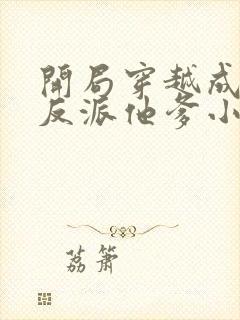 開局穿越成
反派他爹小
荔簫